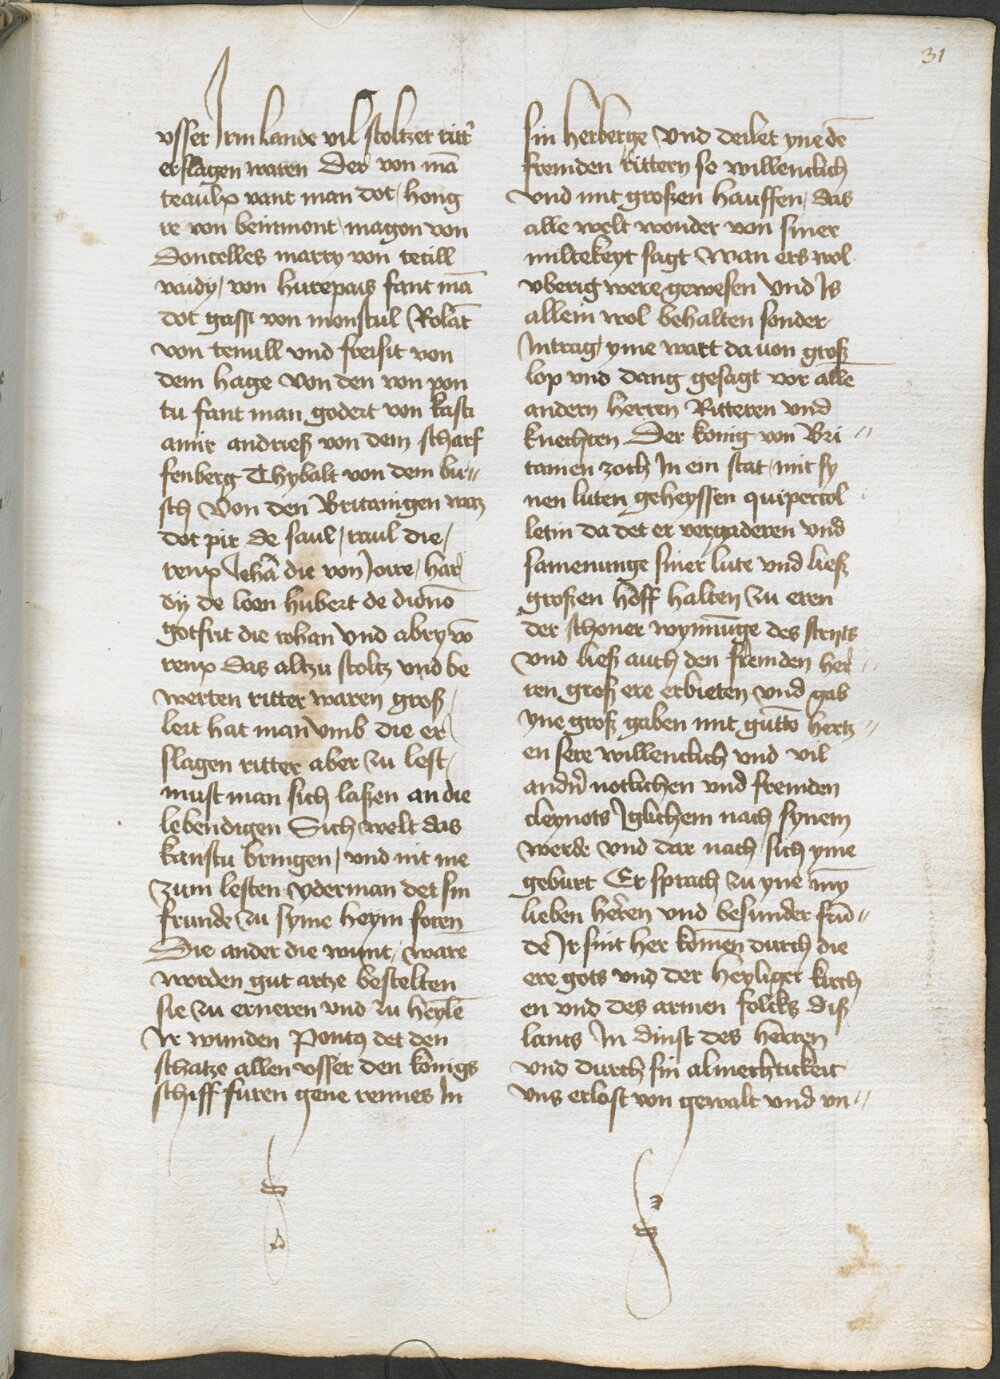 31
vsser Irm lande vil stoltzer ritt'
erslagen waren Der von mā
teaulx vant man dot / hong
re von beinmont magon von
Doncelles marry von tetill
vaidy / von hurepais fant mā
dot gassi von monstul Rolāt
von tenill vnd freisit von
dem hage Von den von pon
tu fant man godert von kasti
amir andrieß von dem scharf
fenberg Thybalt von dem bu=
sch Von den Britanigen waz
dot pir de saul / raul die /
renx Jehā die von Joire / har
dy de loen hubert de diono
gotfrit die rohan vnd abry vō
renx das altzu stoltz vnd be
werten ritter waren groß /
leit hat man vmb die er
slagen ritter aber zu lest /
must man sich laßen an die
lebendigen Sich welt das
kanstu bringen / vnd nit me
Zum lesten yderman det sin
frunde zu syme heym foren
Die ander die wunt / ware
worden gut artze bestelten
sie zu erneren vnd zu heylē
Ir wunden Pontus det den
schatze allen vsser den konigs
schiff furen gene rennes In
sin herberge vnd deilet yne dē
fremden rittern so willenclich
vnd mit großen hauffen / das
alle welt wonder von siner
miltekeyt sagt Wan ers wol
vberig were gewesen vnd Is
allein wol behalten sonder
Intrag / yme wart da von groß
lop vnd dang gesagt vor alle
andern herren Ritteren vnd
knechten Der konig von Bri =
tanien zoch In ein stat / mit sy
nen luten geheyssen quipercol
letin da det er vergaderen vnd
samenunge siner lute vnd ließ
großen hoff halten zu eren
der schoner wynnūge des strijts
vnd ließ auch den fremden her =
ren groß ere erbieten vnd gab
yne groß gaben mit guttō hertz =
en sere willenclich vnd vil
andn̄ notlichen vnd fremden
cleynots Iglichem nach synem
werde vnd dar nach sich yme
geburt Er sprach zu yne my̅
lieben herren vnd besunder frū=
de Ir sint her komen durch die
ere gots vnd der heyliger kirch
en vnd des armen folcks diß
lants In dinst des herren
vnd durch sin almechtickeit
vns erlost von gewalt vnd vn=